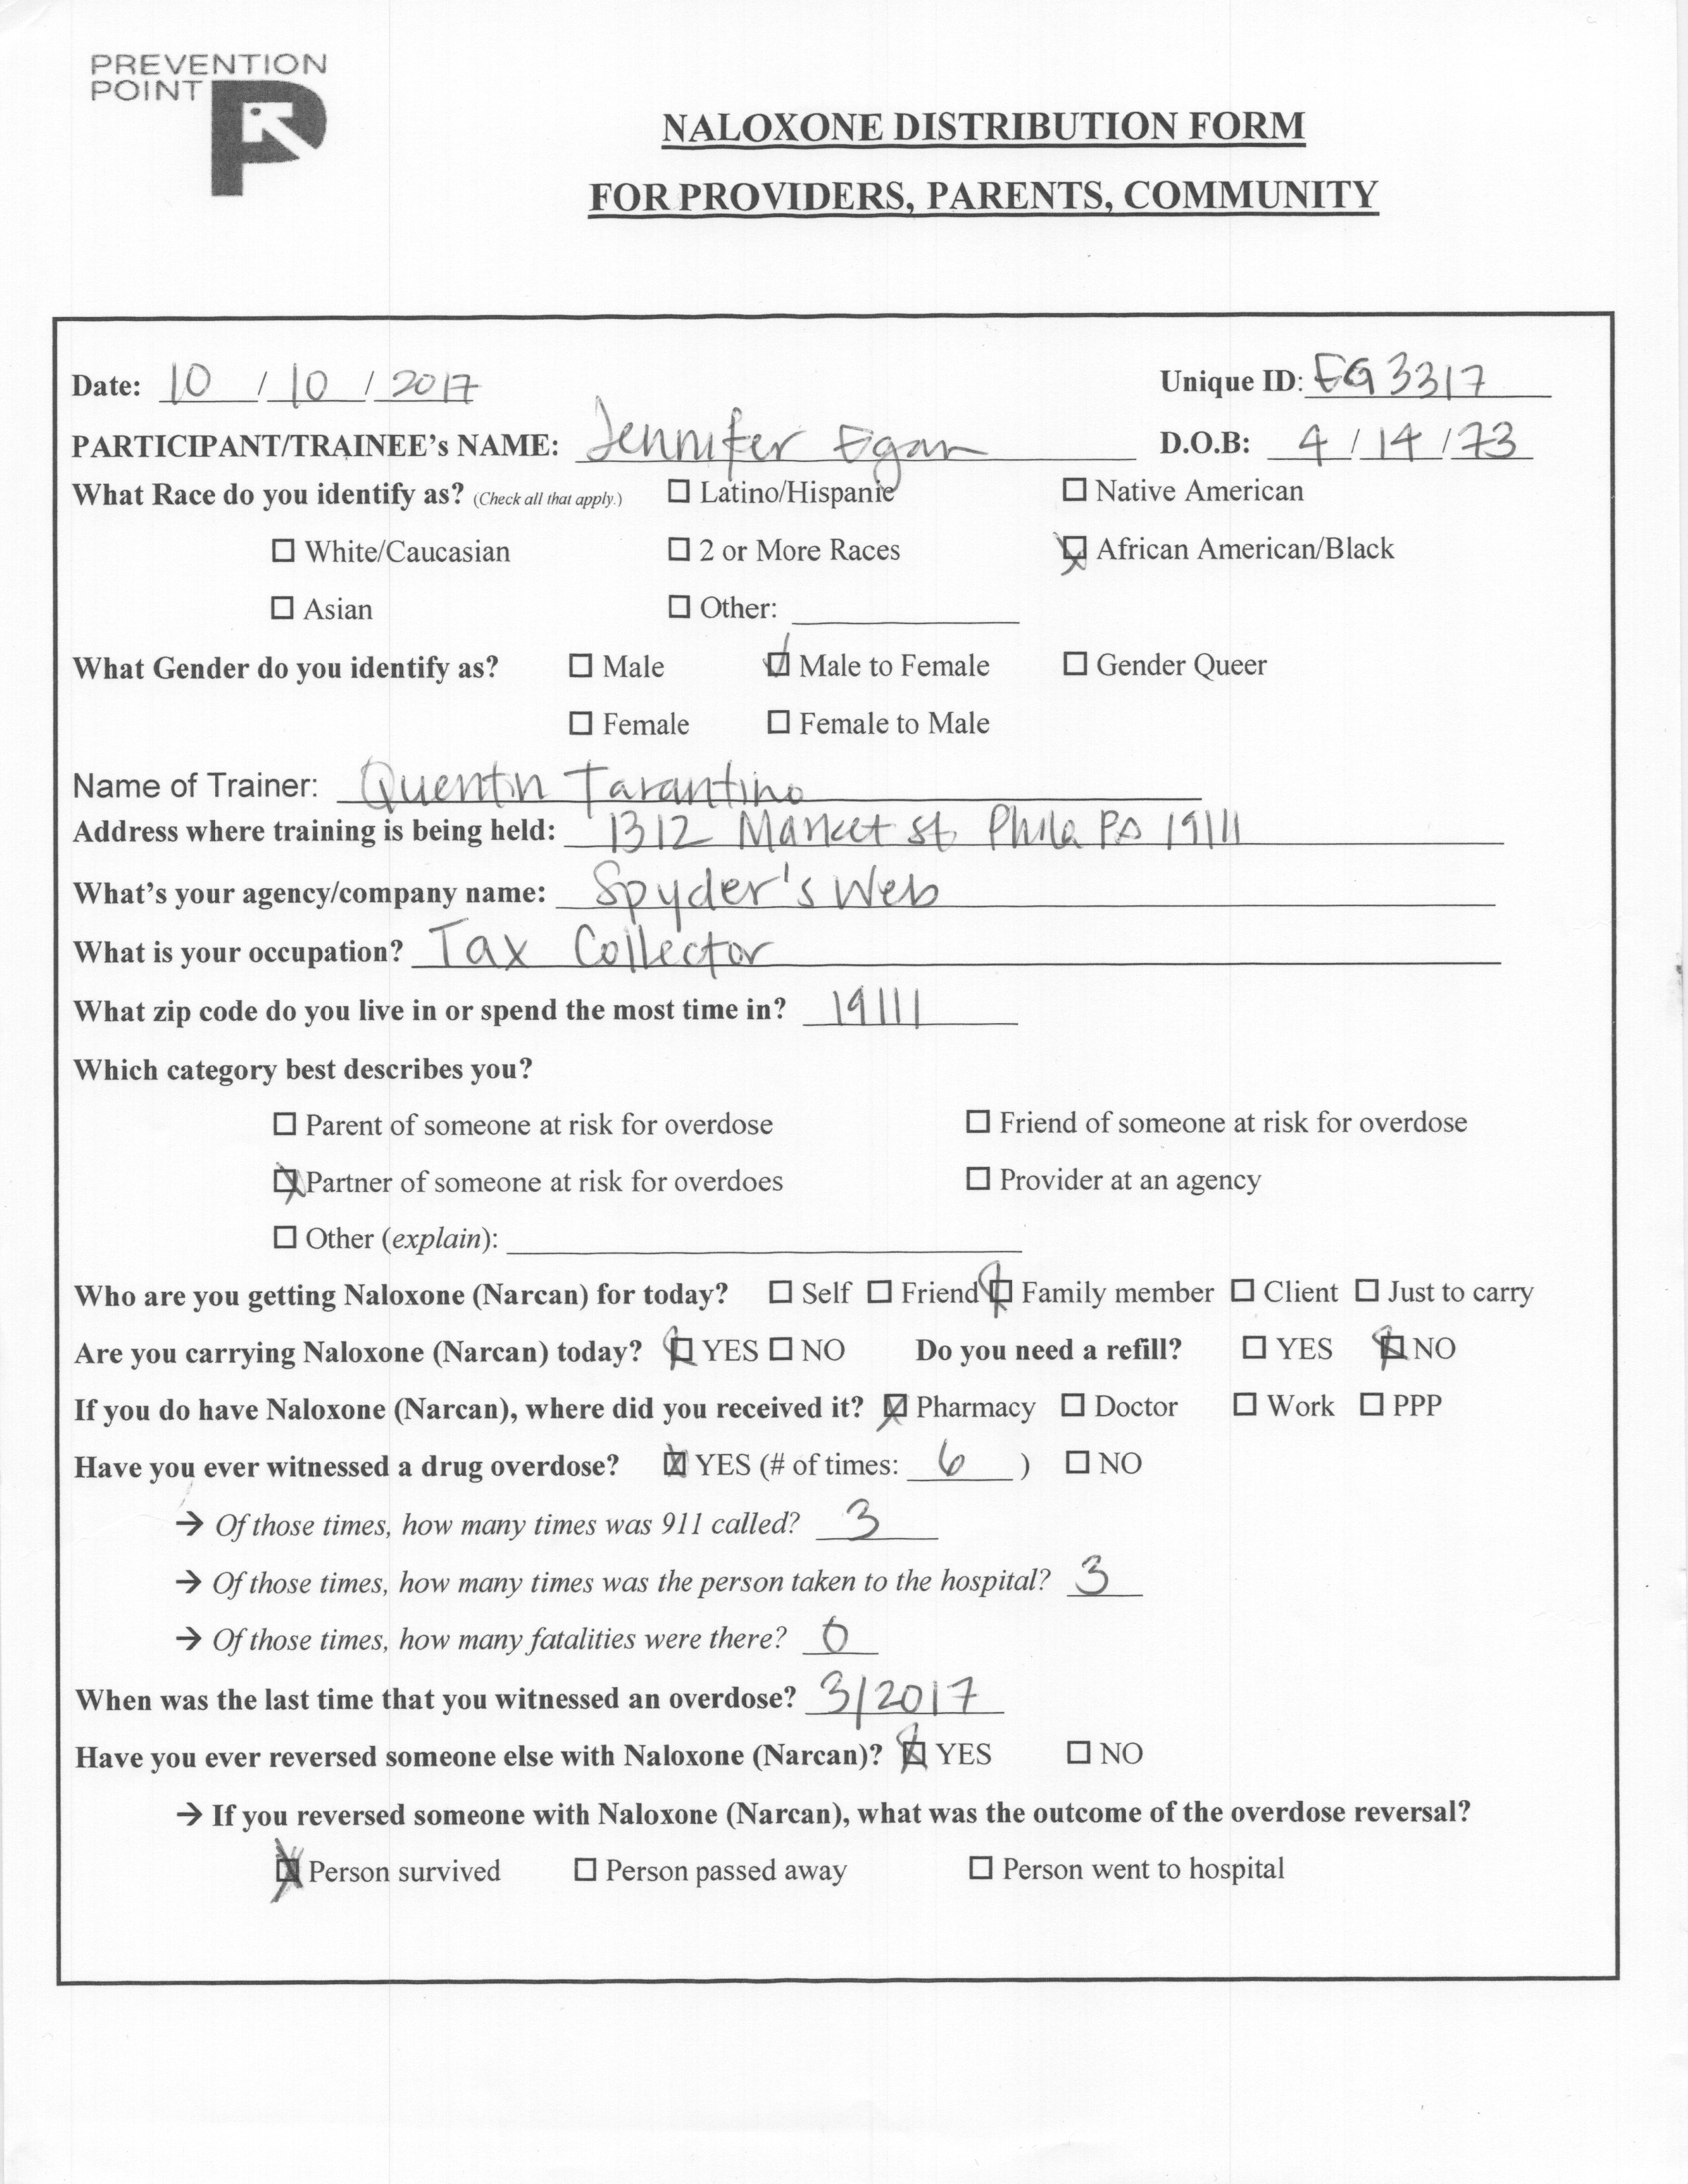 PREVENTION
POINT
NALOXONE DISTRIBUTION FORM
FOR PROVIDERS, PARENTS, COMMUNITY
Date: 10 / 10 / 2017 Unique ID: EG3317
PARTICIPANT/TRAINEE's NAME: Jennifer Egan D.O.B: 4 / 14 / 73
What Race do you identify as? (Check all that apply.) ☐ Latino/Hispanic ☐ Native American
☐ White/Caucasian ☐ 2 or More Races ☒ African American/Black
☐ Asian ☐ Other: ____
What Gender do you identify as? ☐ Male ☒ Male to Female ☐ Gender Queer
☐ Female ☐ Female to Male
Name of Trainer: Quentin Tarantino
Address where training is being held: 1312 Market St. Phila PA 19111
What's your agency/company name: Spyder's Web
What is your occupation? Tax Collector
What zip code do you live in or spend the most time in? 19111
Which category best describes you?
☐ Parent of someone at risk for overdose ☐ Friend of someone at risk for overdose
☒ Partner of someone at risk for overdoes ☐ Provider at an agency
☐ Other (explain): ____
Who are you getting Naloxone (Narcan) for today? ☐ Self ☐ Friend ☒ Family member ☐ Client ☐ Just to carry
Are you carrying Naloxone (Narcan) today? ☒ YES ☐ NO Do you need a refill? ☐ YES ☒ NO
If you do have Naloxone (Narcan), where did you received it? ☒ Pharmacy ☐ Doctor ☐ Work ☐ PPP
Have you ever witnessed a drug overdose? ☒ YES (# of times: 6 ) ☐ NO
→ Of those times, how many times was 911 called? 3
→ Of those times, how many times was the person taken to the hospital? 3
→ Of those times, how many fatalities were there? 0
When was the last time that you witnessed an overdose? 3/2017
Have you ever reversed someone else with Naloxone (Narcan)? ☒ YES ☐ NO
→ If you reversed someone with Naloxone (Narcan), what was the outcome of the overdose reversal?
☒ Person survived ☐ Person passed away ☐ Person went to hospital